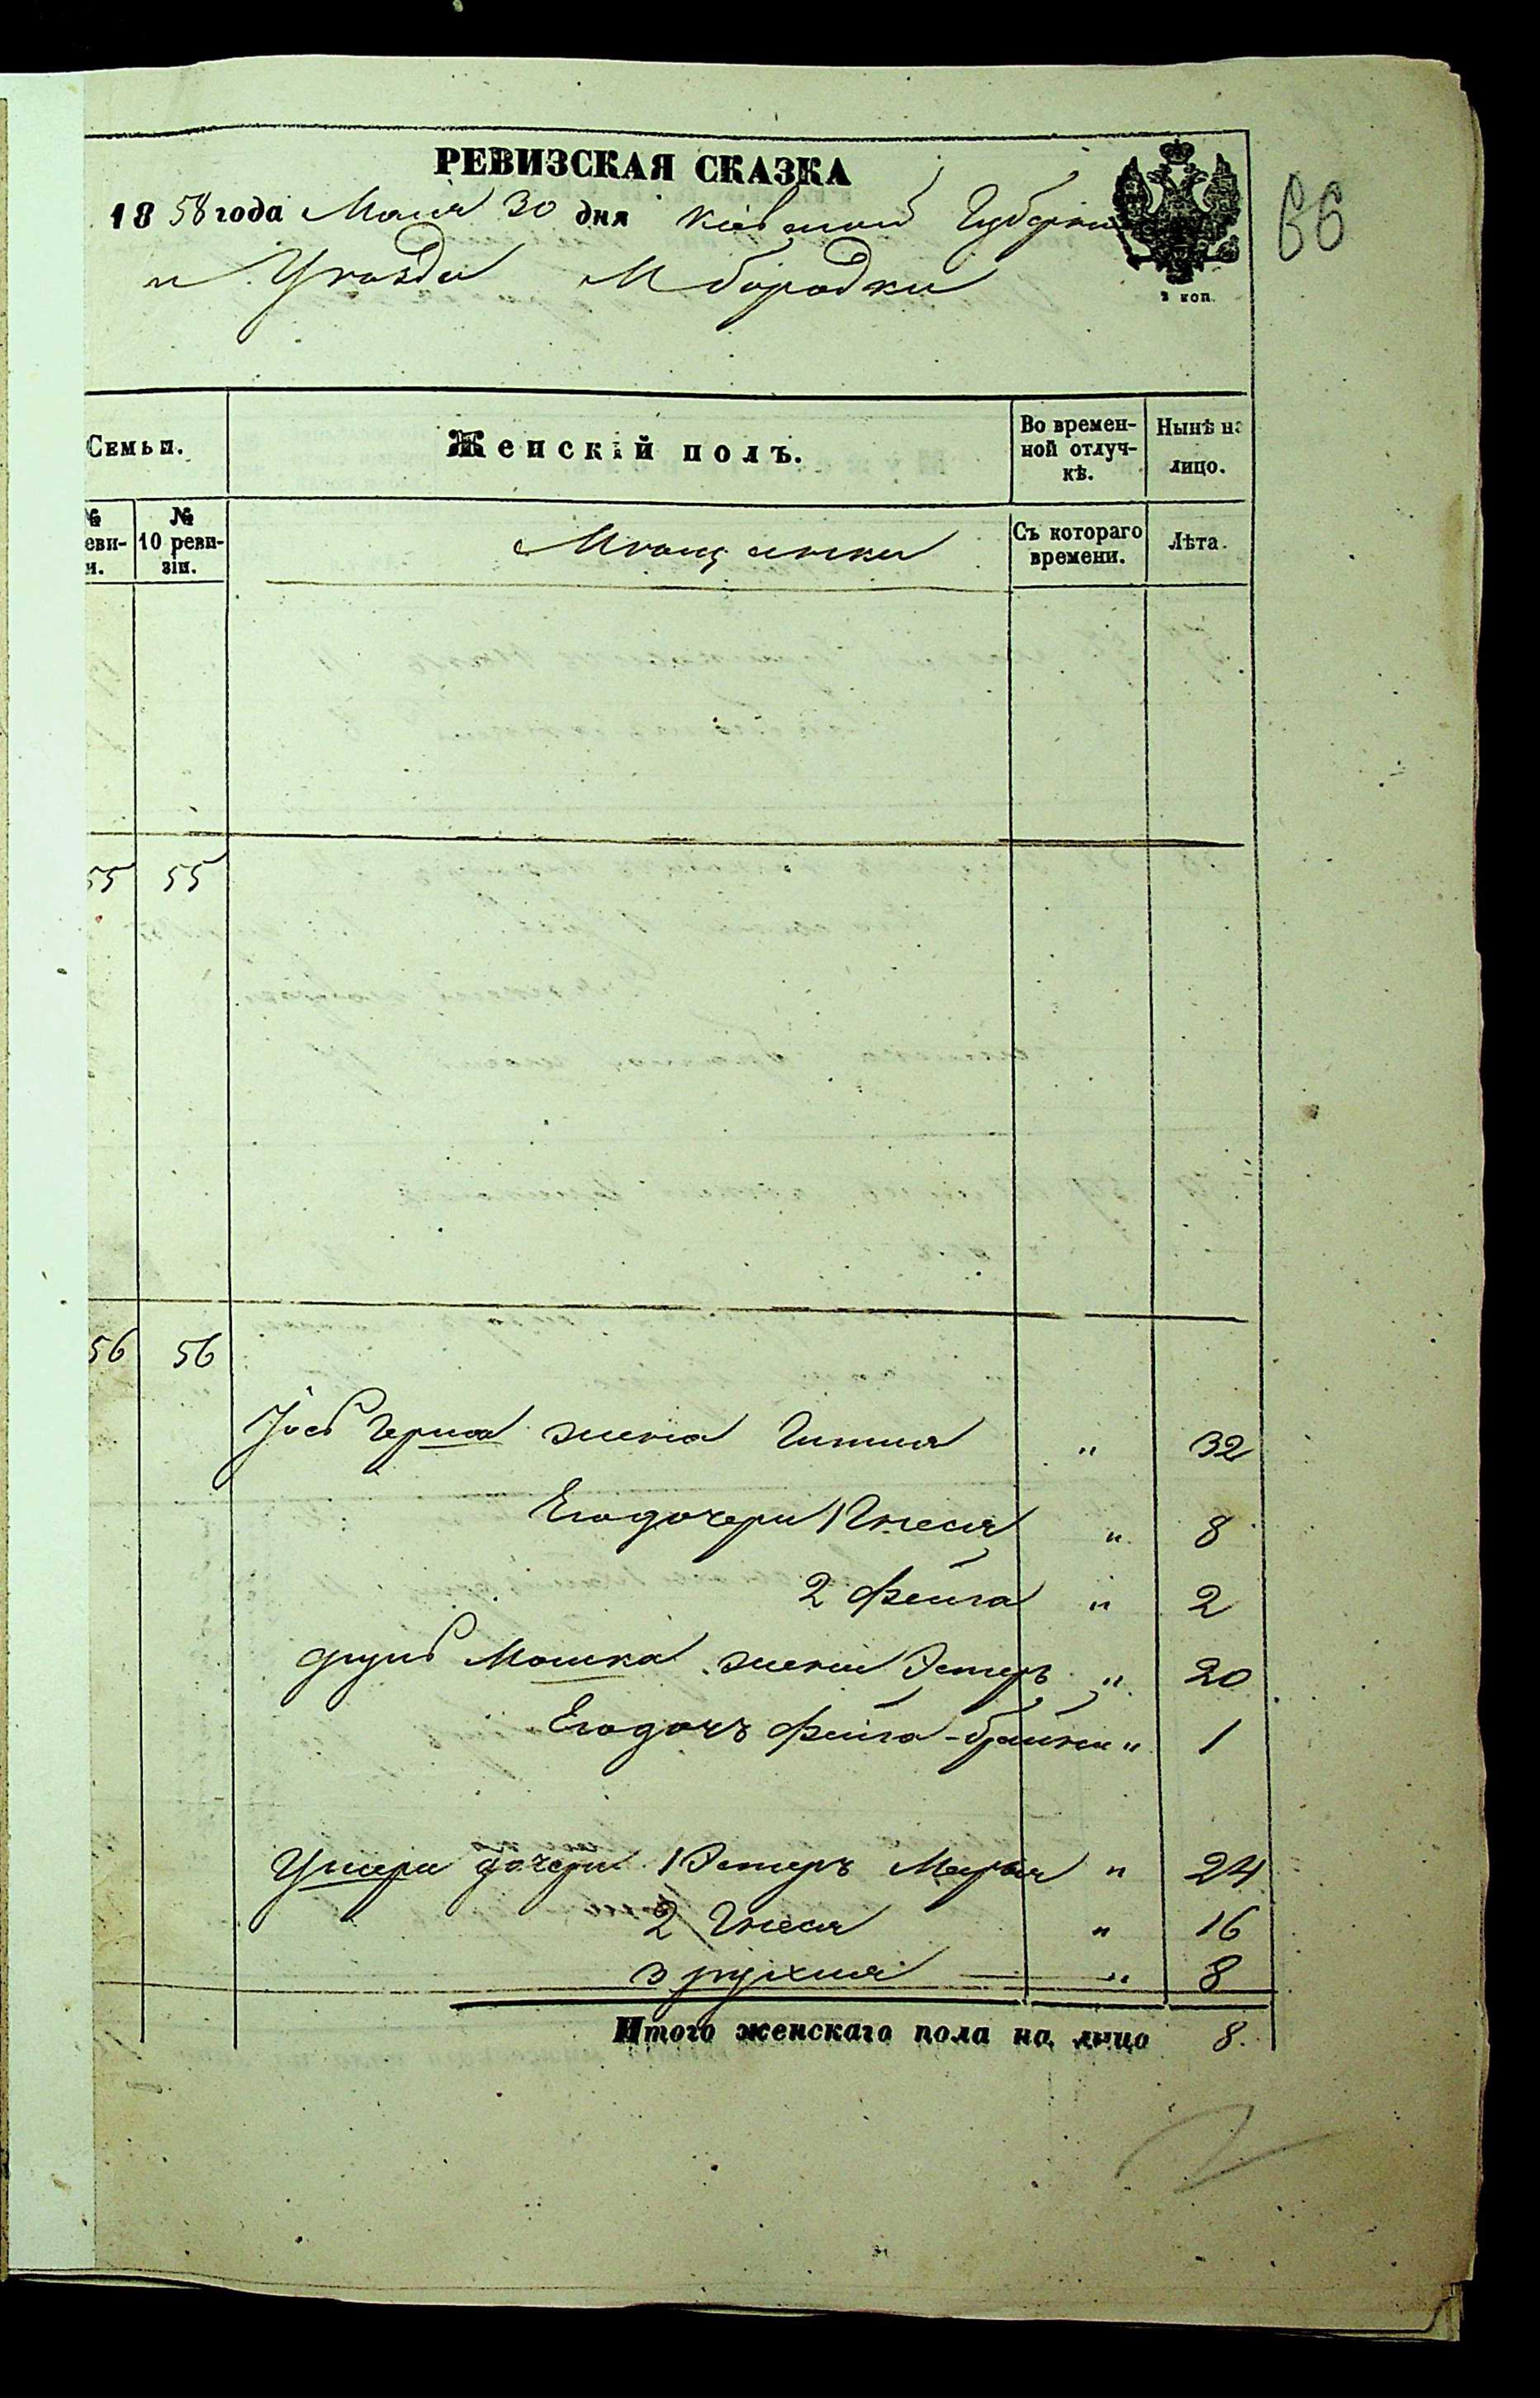 РЕВИЗСКАЯ СКАЗКА
1858 года Мая 30 дня Киевской Губерніи
и Уѣзда М бородки
2 коп.
66
Семьи.
Женскій полъ.
Во времен-
ной отлуч-
кѣ.
Нынѣ на
лицо.
№
еви-
и.
№
10 реви-
зіи.
Мѣщанки
Съ котораго
времени.
Лѣта.
55 55
56 56
жена " 32
Его дочери 1 Гнеся " 8
2 Фейга " 2
Мошка жена Эстеръ " 20
Его дочь Фейга-брайна " 1
Ушера дочери 1 Эстеръ Маръя " 24
2 Гнеся " 16
3 рухля " 8
Итого женскаго пола на лицо 8.